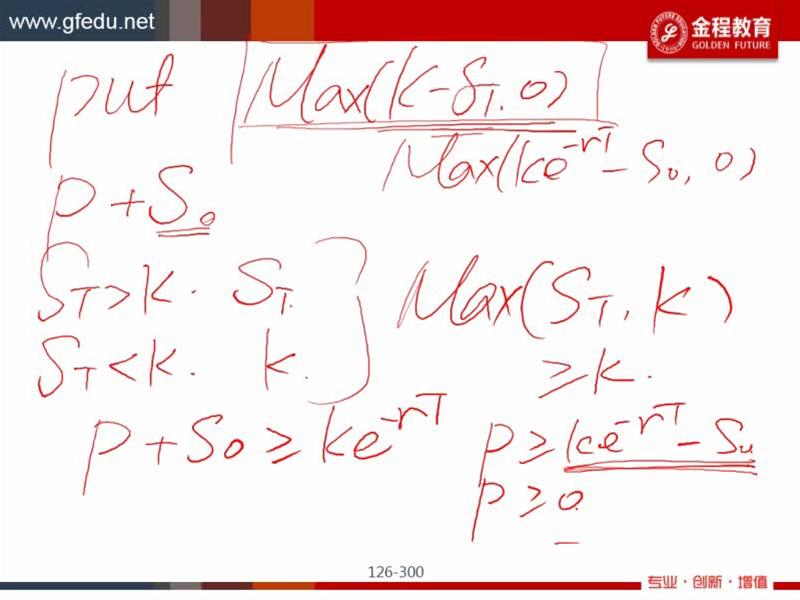 www.gfedu.net
金程教育
GOLDEN FUTURE
put Max(K-S_T, 0)
Max(Ke^{-rT} - S_0, 0)
P + S_0
S_T > K. S_T.
Max(S_T, K)
S_T < K. K.
≥ K.
P + S_0 ≥ Ke^{-rT}
P ≥ Ke^{-rT} - S_0
P ≥ 0
126-300
专业·创新·增值